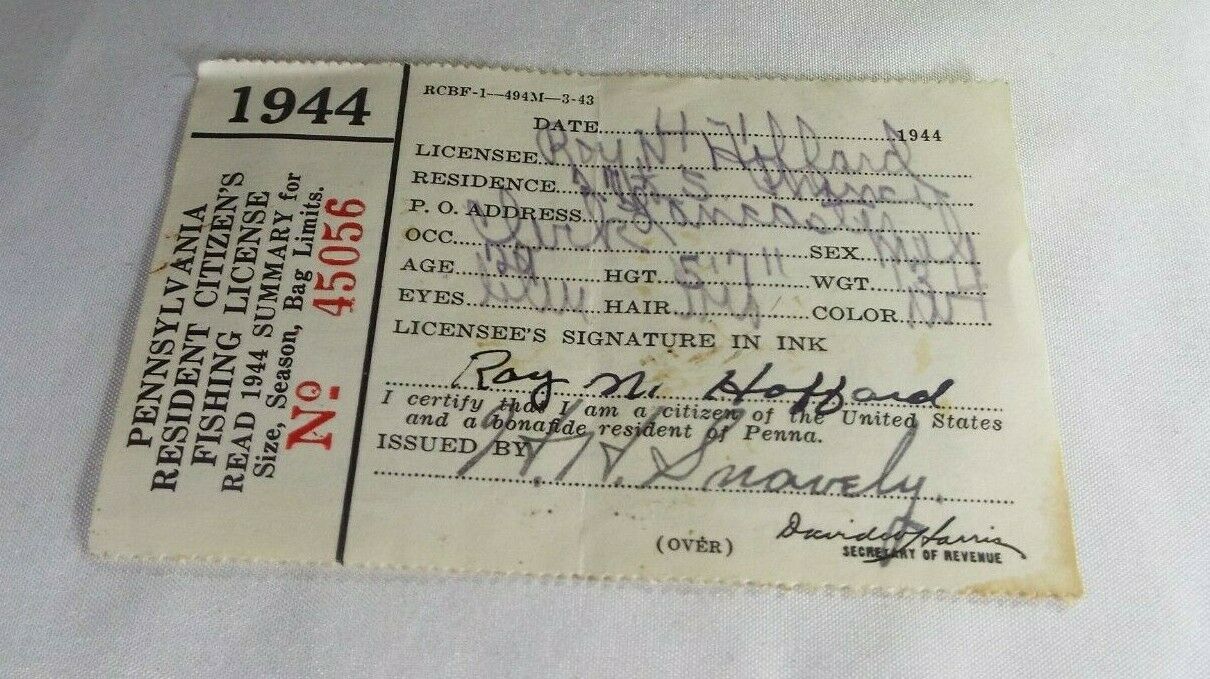 1944
PENNSYLVANIA
RESIDENT CITIZEN'S
FISHING LICENSE
READ 1944 SUMMARY for
Size, Season, Bag Limits.
No. 45056
RCBF-1—494M—3-43
DATE 1944
LICENSEE Roy Hoffard
RESIDENCE
P. O. ADDRESS Lancaster
OCC. Clerk SEX Male
AGE HGT. 5'7" WGT. 134
EYES HAIR COLOR
LICENSEE'S SIGNATURE IN INK
Roy M. Hoffard
I certify that I am a citizen of the United States
and a bonafide resident of Penna.
ISSUED BY H. H. Snavely.
(OVER)
David W Harris
SECRETARY OF REVENUE